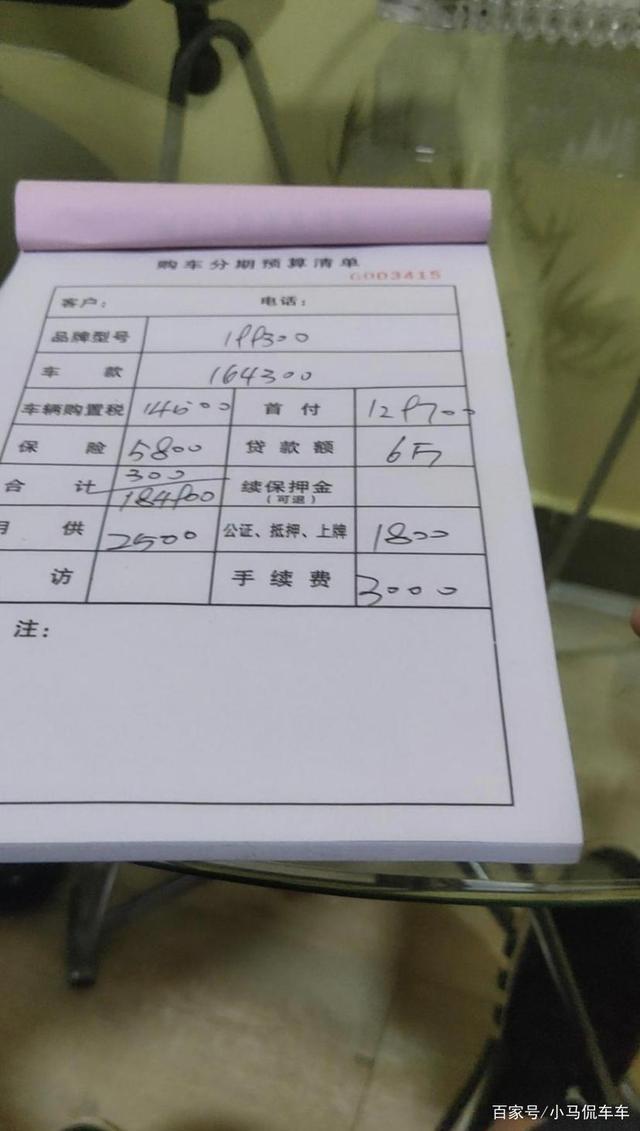 购车分期预算清单
G0D3415
客户: 电话:
品牌型号 199300
车款 164300
车辆购置税 14500 首付 129700
保险 5800 贷款额 6万
合计 300 184900 续保押金
(可退)
月供 2500 公证、抵押、上牌 1800
访 手续费 3000
注:
百家号/小马侃车车